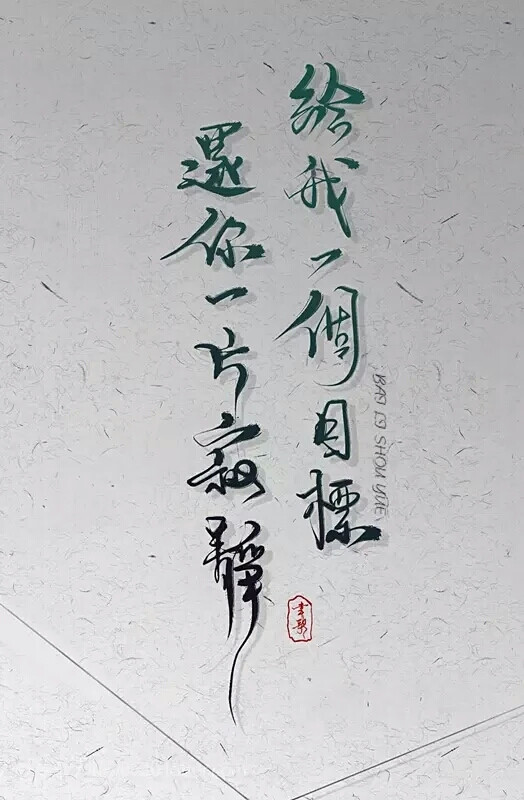 給我一個目標
還你一片寂靜
BAI LI SHOU YUE